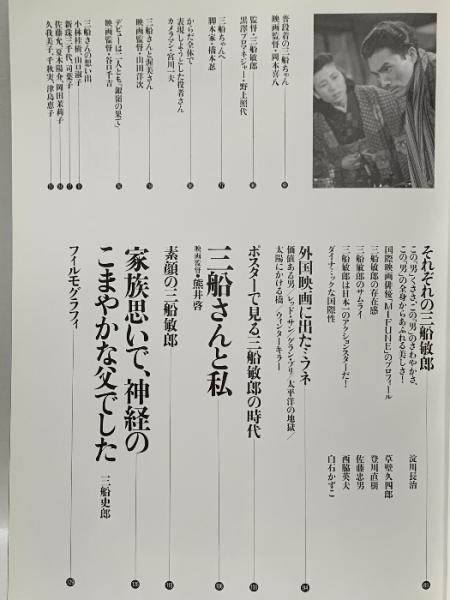 普段着の三船ちゃん
映画監督・岡本喜八
監督・三船敏郎
黒澤プロ・マネジャー・野上照代
三船ちゃんへ
脚本家・橋本忍
からだ全体で
表現しようとした役者さん
カメラマン・宮川一夫
三船さんと渥美さん
映画監督・山田洋次
デビューは、二人とも「銀嶺の果て」
映画監督・谷口千吉
三船さんの思い出
小林桂樹、山口淑子
新珠三千代、司葉子
佐藤允、夏木陽介、岡田茉莉子
久我美子、千秋実、津島恵子
それぞれの三船敏郎
この“男”くささ、この“男”のさわやかさ、
この“男”の全身からあふれる美しさ! 淀川長治
国際映画俳優、「MIFUNE」のプロフィール 草壁久四郎
三船敏郎の存在感 登川直樹
三船敏郎のサムライ 佐藤忠男
三船敏郎は日本一のアクションスターだ! 西脇英夫
ダイナミックな国際性 白石かずこ
外国映画に出たミフネ
価値ある男/レッド・サン/グラン・プリ/太平洋の地獄/
太陽にかける橋/ウィンターキラー
ポスターで見る三船敏郎の時代
三船さんと私
映画監督・熊井啓
素顔の三船敏郎
家族思いで、神経の
こまやかな父でした 三船史郎
フィルモグラフィ